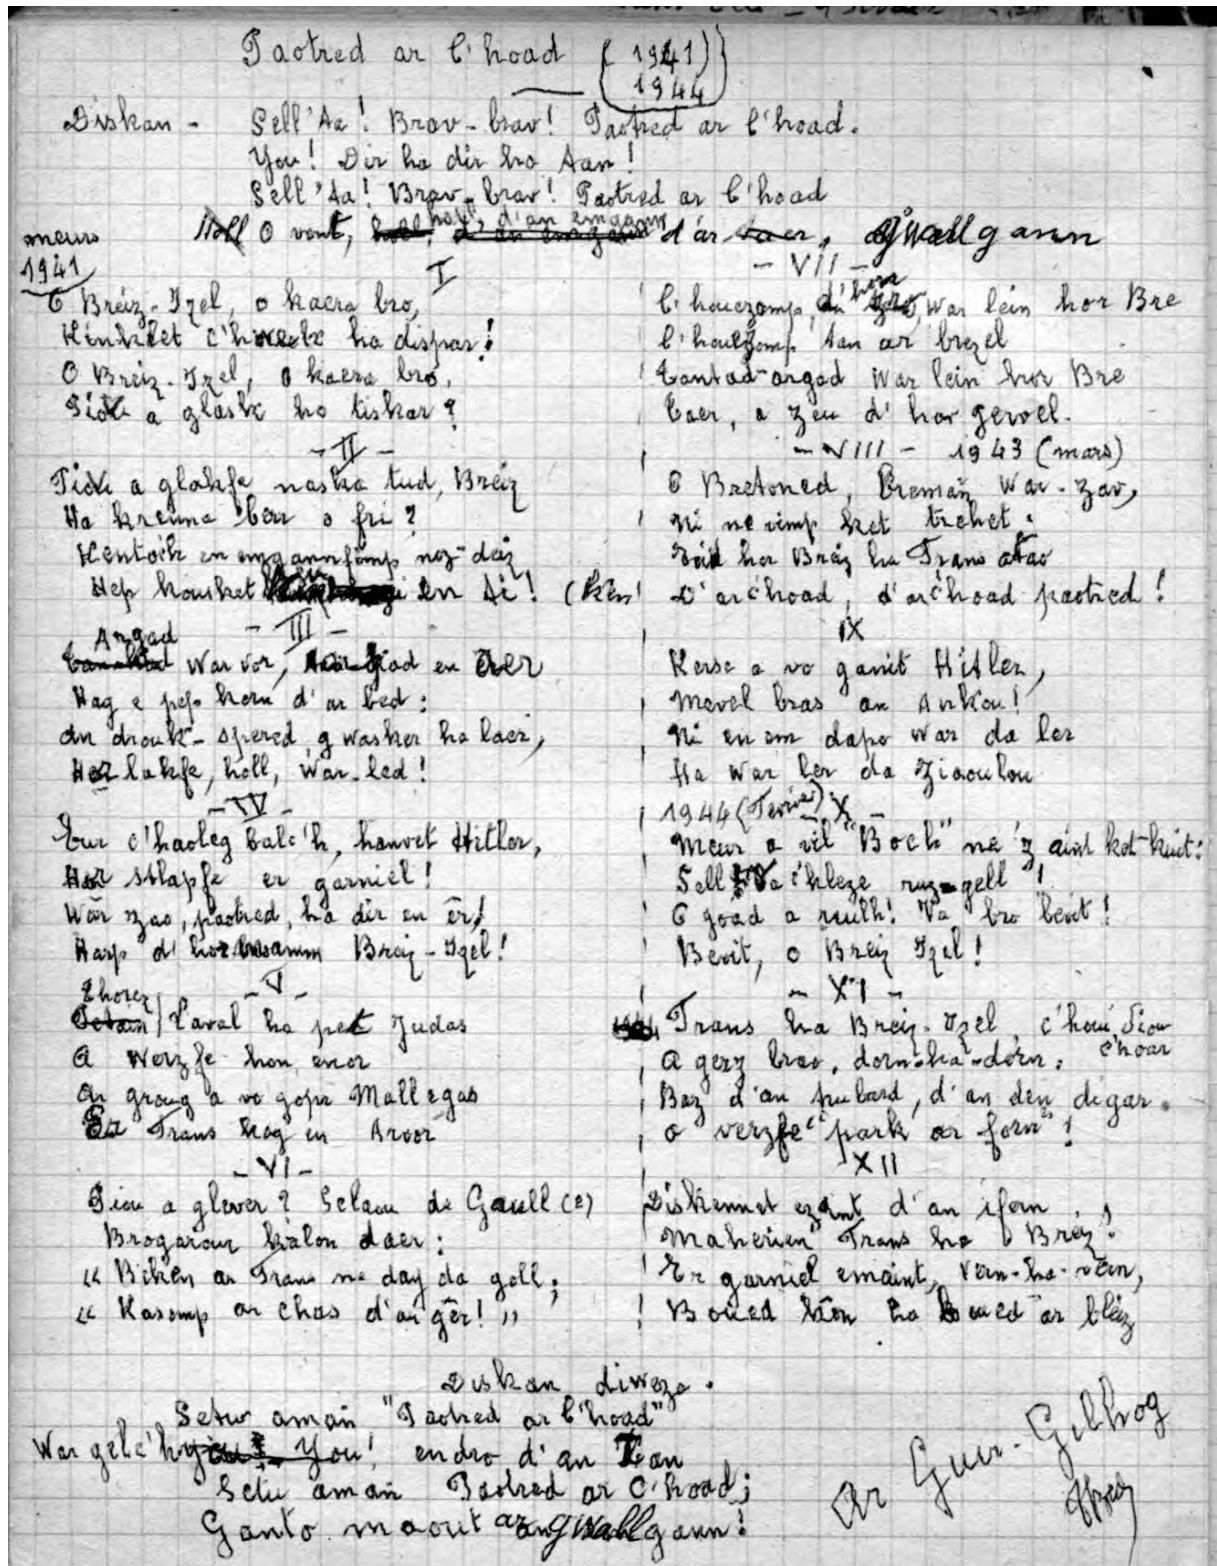 Paotred ar C'hoad (1941)
1944
Diskan - Sell'Aa! Brav-brav! Paotred ar C'hoad.
You! Dir ha dir ha tan!
Sell'Aa! Brav-brav! Paotred ar C'hoad
Holl O vont, d'ar gwallgann
meurs
1941
I
O Breiz-Izel, o kaera bro,
Kinklet c'houek ha dispar!
O Breiz-Izel, o kaera bro,
Piou a glask ho tiskar?
- II -
Piou a glakfe naska tud, Breiz
Ha krenna berr o fri?
Kentoc'h en emgannfimp noz-deiz
Hep kousket en ti! (Ken
- III -
Argad
war vor, en aer
Hag e pep korn d'ar bed:
An drouk-spered, gwasker ha laer,
Hol lakfe, holl, war-led!
- IV -
Eur c'haoleg balc'h, hanvet Hitler,
Hor stlapfe er garniel!
War zao, paotred, ha dir en êr!
Harp d'hor mamm Breiz-Izel!
- V -
Laval ha pet Judas
A werzfe hon enor
Ar groug a vo gopr Mallegas
E Frans hag en Arvor
- VI -
Piou a glever? Selaou de Gaull (e)
Brogarour kalon daer:
« Biken ar Frans ne day da goll;
« Kasomp ar chas d'ar gêr! »
- VII -
C'houezomp, war lein hor Bre
C'houezomp tan ar brezel
Tantad-argad war lein hor Bre
Caer, a zeu d'hor gervel.
- VIII - 1943 (mars)
O Bretoned, Breman war-zav,
Ni ne vimp ket trehet:
hor Breiz ha Frans atao
D'ar c'hoad, d'ar c'hoad paotred!
IX
Kerse a vo ganit Hitler,
Mevel bras an Ankou!
Ni en em dapo war da ler
Ha war ler da ziaoulou
1944 - X -
Meur a vil "Boch" ne'z aint ket kuit:
Sell va c'hleze ruz-gell!
O goad a ruilh! Va bro bevit!
Bevit, o Breiz Izel!
- XI -
Frans ha Breiz-Izel, c'houi, diou
c'hoar
A gerz brao, dorn-ha-dorn:
Baz d'an hubard, d'an den digar.
O verzfe "park ar forn"!
XII
Diskennet ezint d'an ifern
Maherien Frans ha Breiz!
Er garniel emaint, vern-ha-vern,
Boued ha boued ar bleiz
Diskan diweza.
Setu aman "Paotred ar C'hoad"
War gelc'h You! endro d'an Tan
Setu aman Paotred ar C'hoad;
Ganto maout ar gwallgann!
Ar Gwir-Gelhog